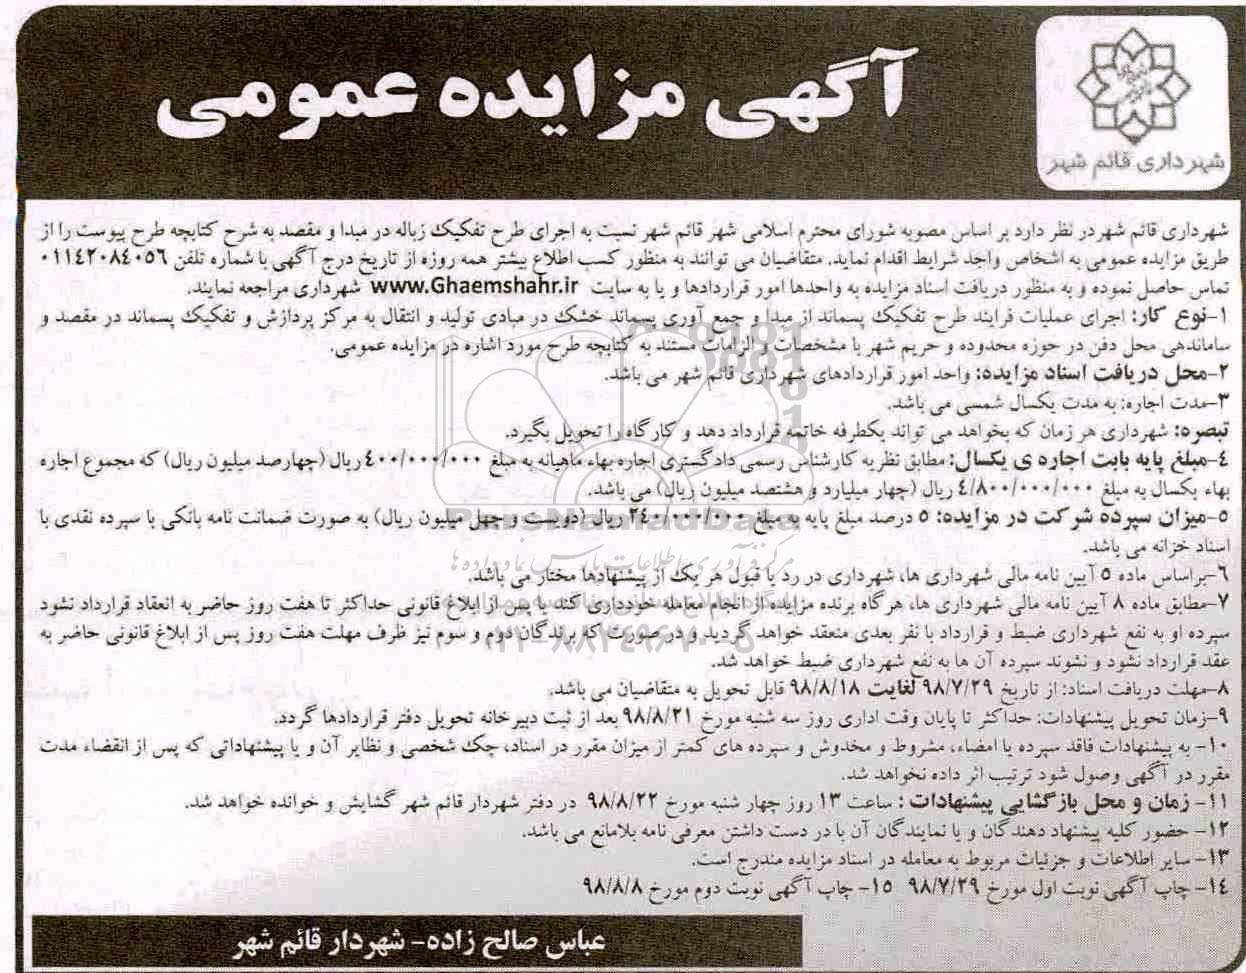 آگهی مزایده عمومی
شهرداری قائم شهر
شهرداری قائم شهر در نظر دارد بر اساس مصوبه شورای محترم اسلامی شهر قائم شهر نسبت به اجرای طرح تفکیک زباله در مبدا و مقصد به شرح کتابچه طرح پیوست را از
طریق مزایده عمومی به اشخاص واجد شرایط اقدام نماید. متقاضیان می توانند به منظور کسب اطلاع بیشتر همه روزه از تاریخ درج آگهی با شماره تلفن ۰۱۱۴۲۰۸۴۰۵۶
تماس حاصل نموده و به منظور دریافت اسناد مزایده به واحدها امور قراردادها و یا به سایت www.Ghaemshahr.ir شهرداری مراجعه نمایند.
۱-نوع کار: اجرای عملیات فرایند طرح تفکیک پسماند از مبدا و جمع آوری پسماند خشک در مبادی تولید و انتقال به مرکز پردازش و تفکیک پسماند در مقصد و
ساماندهی محل دفن در حوزه محدوده و حریم شهر با مشخصات و الزامات مستند به کتابچه طرح مورد اشاره در مزایده عمومی.
۲-محل دریافت اسناد مزایده: واحد امور قراردادهای شهرداری قائم شهر می باشد.
۳-مدت اجاره: به مدت یکسال شمسی می باشد.
تبصره: شهرداری هر زمان که بخواهد می تواند یکطرفه خاتمه قرارداد دهد و کارگاه را تحویل بگیرد.
۴-مبلغ پایه بابت اجاره ی یکسال: مطابق نظریه کارشناس رسمی دادگستری اجاره بهاء ماهیانه به مبلغ ۴۰۰/۰۰۰/۰۰۰ ریال (چهارصد میلیون ریال) که مجموع اجاره
بهاء یکسال به مبلغ ۴/۸۰۰/۰۰۰/۰۰۰ ریال (چهار میلیارد و هشتصد میلیون ریال) می باشد.
۵-میزان سپرده شرکت در مزایده: ۵ درصد مبلغ پایه به مبلغ ۲۴۰/۰۰۰/۰۰۰ ریال (دویست و چهل میلیون ریال) به صورت ضمانت نامه بانکی با سپرده نقدی با
اسناد خزانه می باشد.
۶-براساس ماده ۵ آیین نامه مالی شهرداری ها، شهرداری در رد یا قبول هر یک از پیشنهادها مختار می باشد.
۷-مطابق ماده ۸ آیین نامه مالی شهرداری ها، هرگاه برنده مزایده از انجام معامله خودداری کند یا پس از ابلاغ قانونی حداکثر تا هفت روز حاضر به انعقاد قرارداد نشود
سپرده او به نفع شهرداری ضبط و قرارداد با نفر بعدی منعقد خواهد گردید و در صورت که برندگان دوم و سوم نیز ظرف مهلت هفت روز پس از ابلاغ قانونی حاضر به
عقد قرارداد نشود و نشوند سپرده آن ها به نفع شهرداری ضبط خواهد شد.
۸-مهلت دریافت اسناد: از تاریخ ۹۸/۷/۲۹ لغایت ۹۸/۸/۱۸ قابل تحویل به متقاضیان می باشد.
۹-زمان تحویل پیشنهادات: حداکثر تا پایان وقت اداری روز سه شنبه مورخ ۹۸/۸/۲۱ بعد از ثبت دبیرخانه تحویل دفتر قراردادها گردد.
۱۰- به پیشنهادات فاقد سپرده یا امضاء، مشروط و مخدوش و سپرده های کمتر از میزان مقرر در اسناد، چک شخصی و نظایر آن و یا پیشنهاداتی که پس از انقضاء مدت
مقرر در آگهی وصول شود ترتیب اثر داده نخواهد شد.
۱۱- زمان و محل بازگشایی پیشنهادات : ساعت ۱۳ روز چهار شنبه مورخ ۹۸/۸/۲۲ در دفتر شهردار قائم شهر گشایش و خوانده خواهد شد.
۱۲- حضور کلیه پیشنهاد دهندگان و یا نمایندگان آن با در دست داشتن معرفی نامه بلامانع می باشد.
۱۳- سایر اطلاعات و جزئیات مربوط به معامله در اسناد مزایده مندرج است.
۱۴- چاپ آگهی نوبت اول مورخ ۹۸/۷/۲۹ ۱۵- چاپ آگهی نوبت دوم مورخ ۹۸/۸/۸
عباس صالح زاده- شهردار قائم شهر